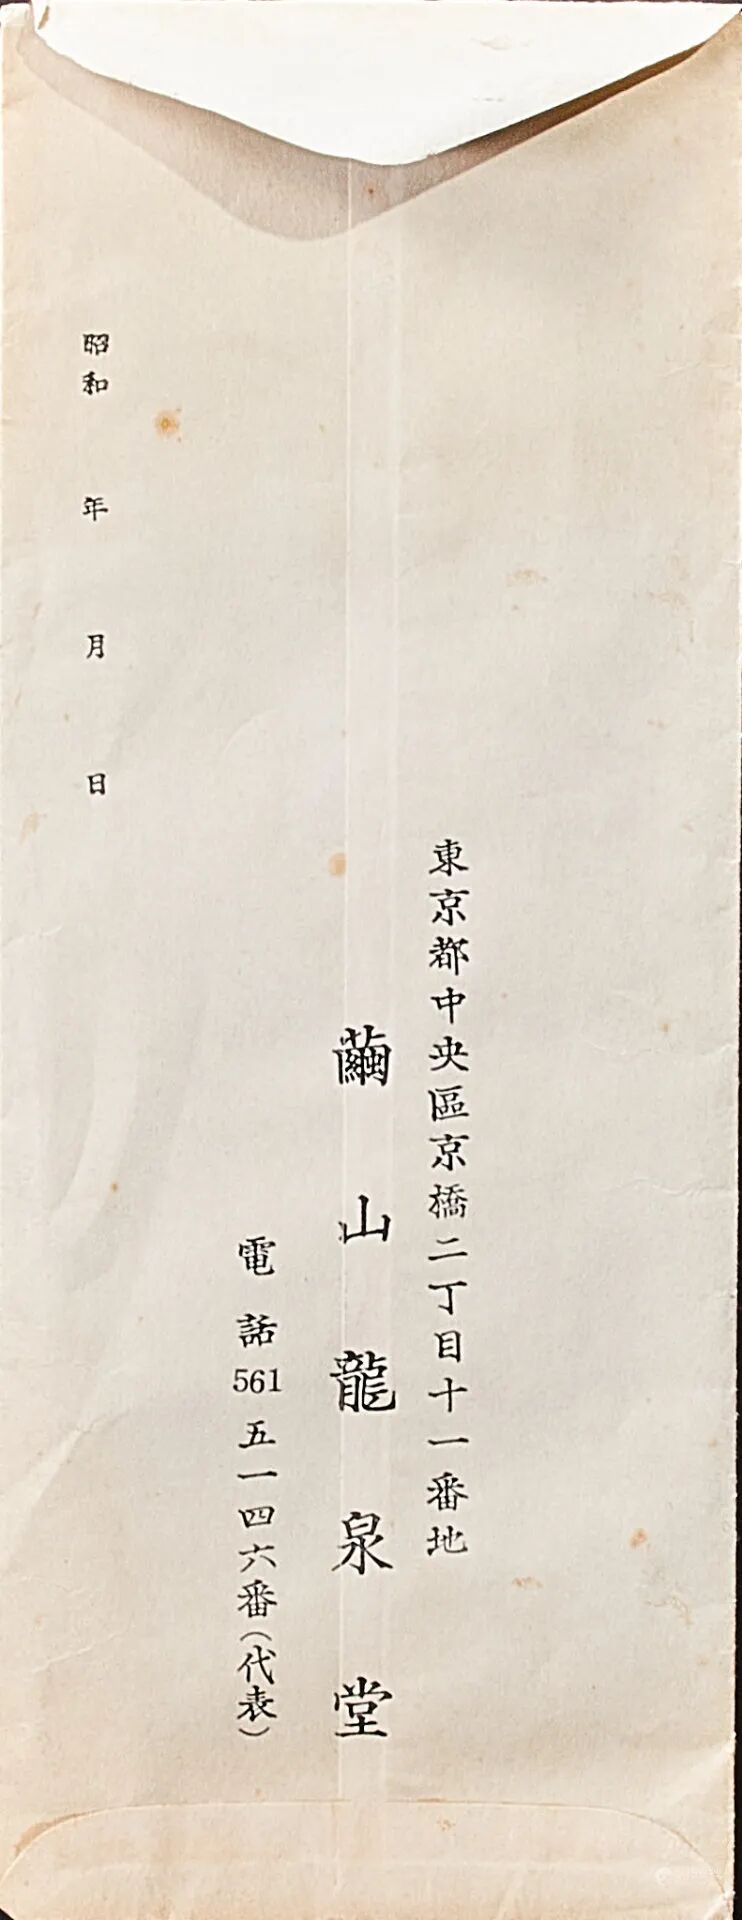 東京都中央區京橋二丁目十一番地
繭山龍泉堂
電話561五一四六番(代表)
昭和 年 月 日